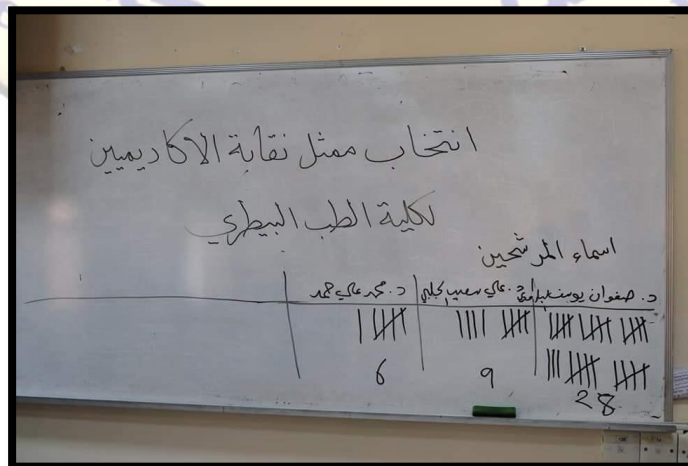 انتخاب ممثل نقابة الاكاديميين
لكلية الطب البيطري
اسماء المرشحين
د. صفوان يوسف د. علي د. محمد علي حمد
28 9 6